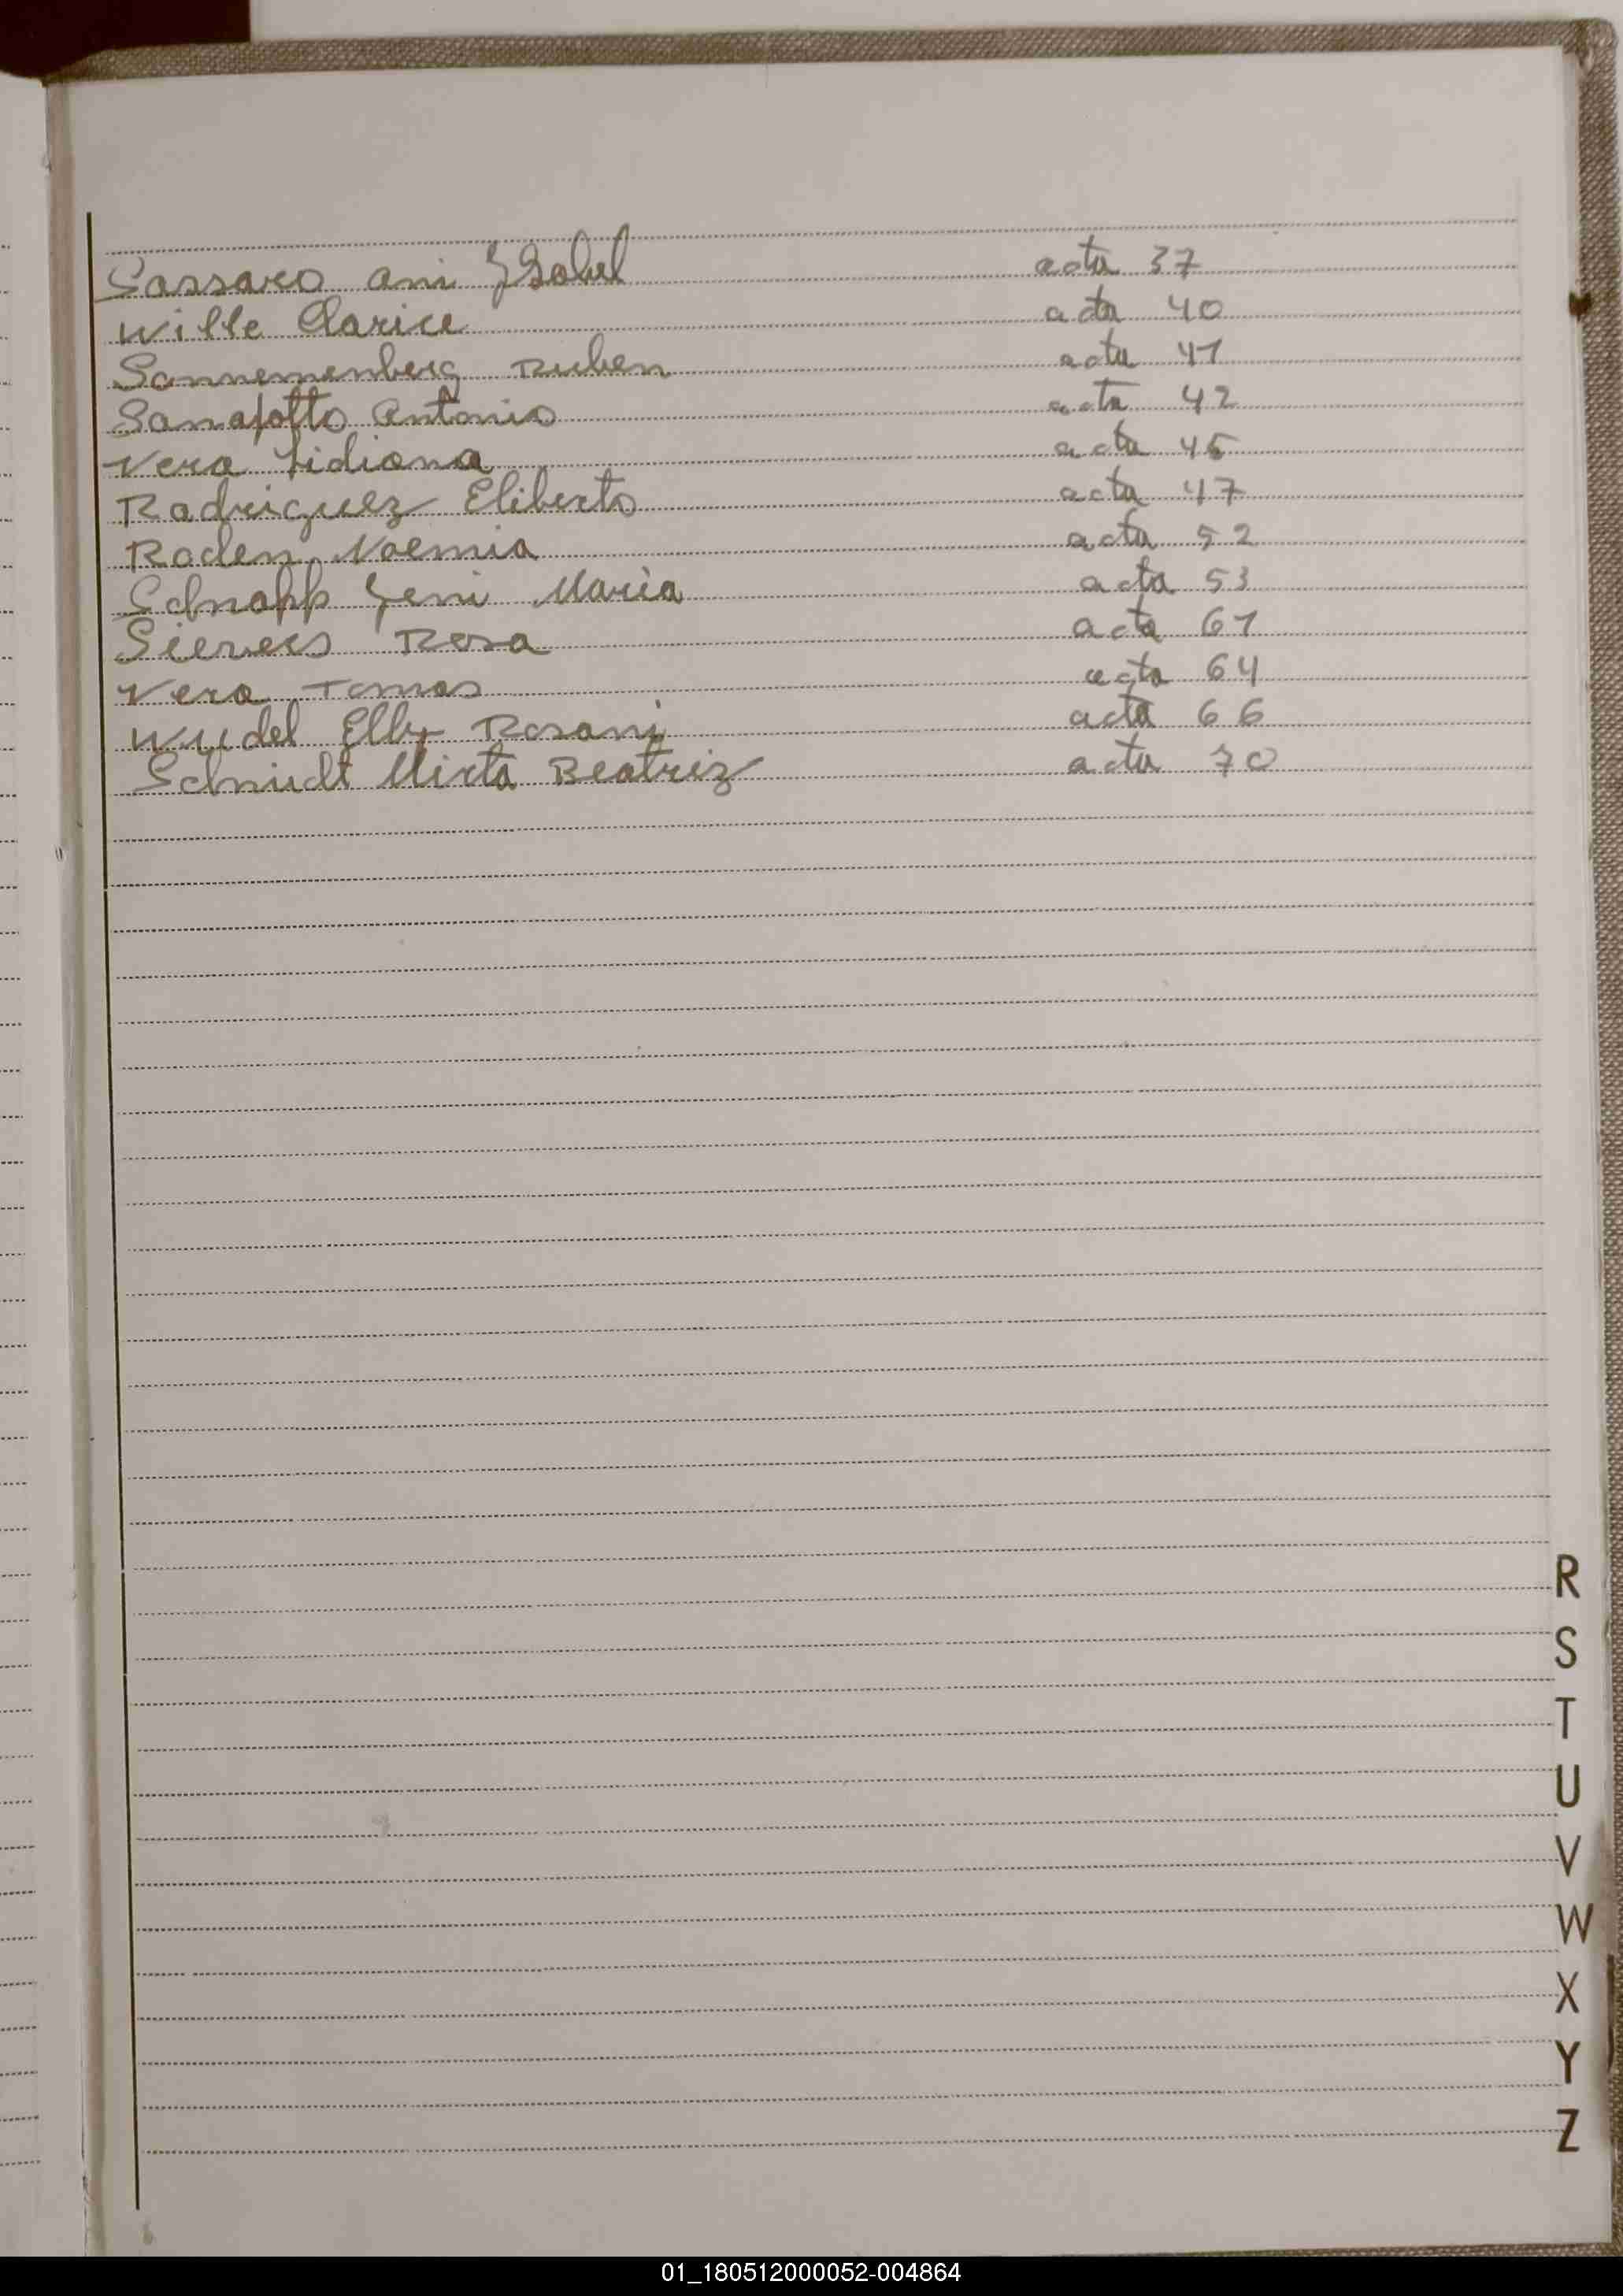 Sassaro ani Ysabel acta 37
Wille Clarice acta 40
Sonnemenberg Ruben acta 41
Sanafotto Antonio acta 42
Vera Lidiana acta 45
Rodriguez Eliberto acta 47
Roden Noemia acta 52
Schnapp Jeni Maria acta 53
Sievers Rosa acta 61
Vera Tomas acta 64
Wudel Elly Rosani acta 66
Schmidt Mirta Beatriz acta 70
R
S
T
U
V
W
X
Y
Z
01_180512000052-004864